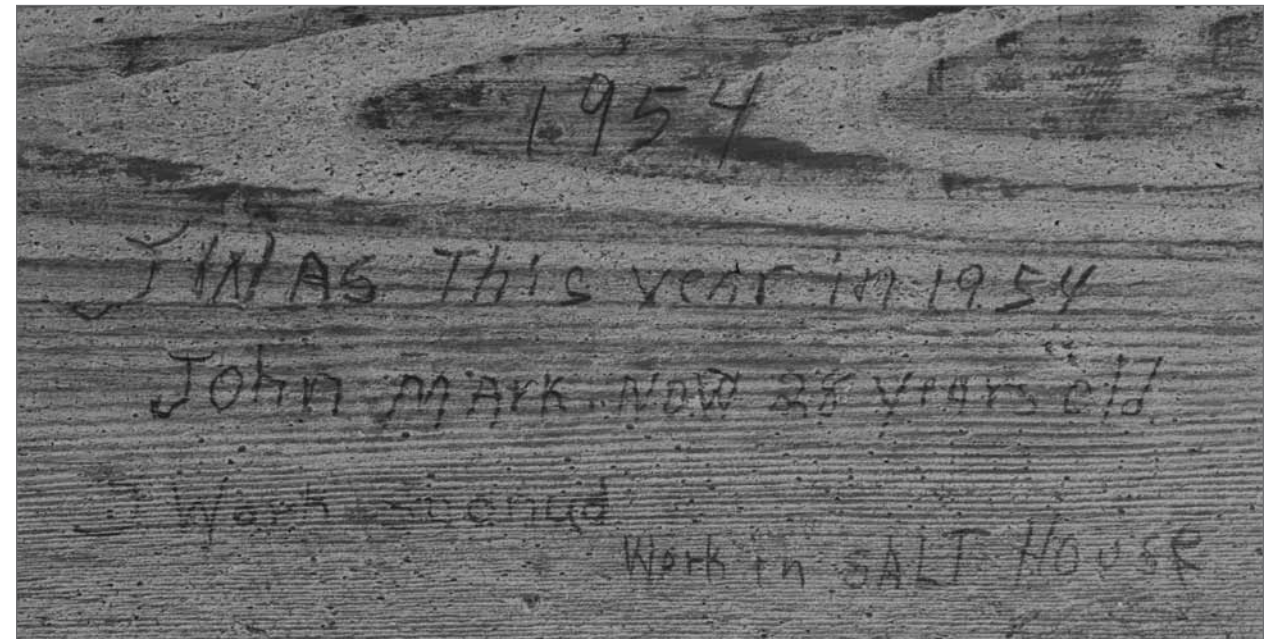 1954
I WAS This year in 1954
John MArk. NOW 28 years old
I Work
Work in SALT HOUSE